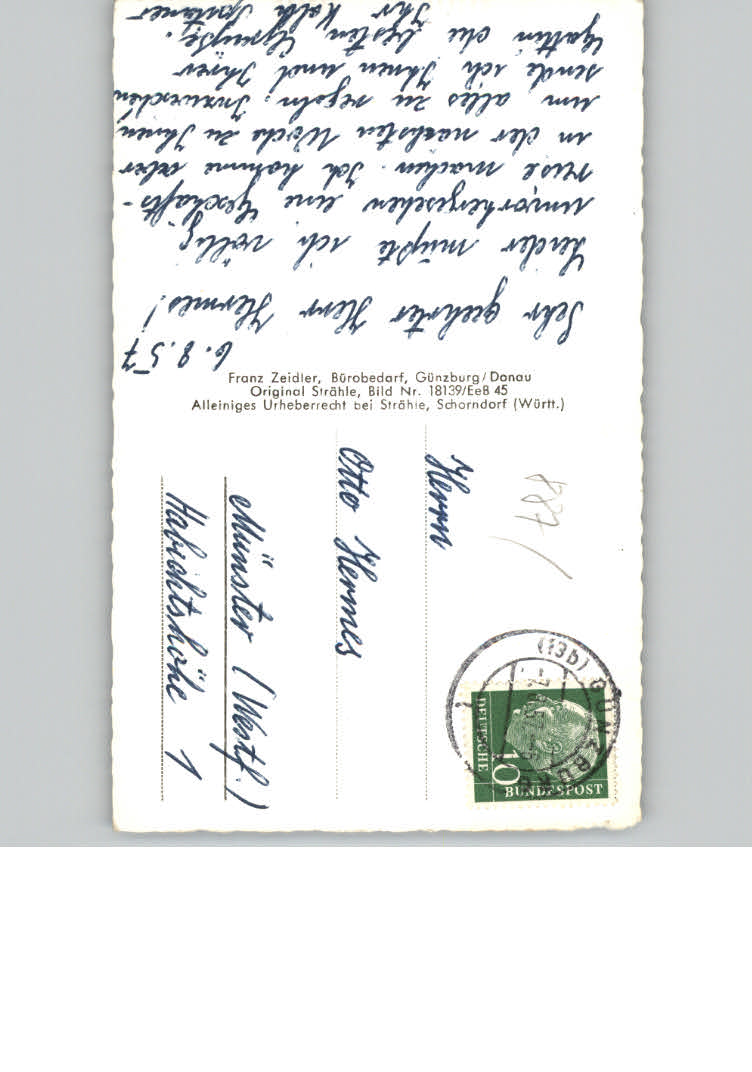 6.8.57
Sehr geehrter Herr Hermes!
Leider müßte ich völlig
unvorhergesehen eine Geschäfts-
reise machen. Ich komme aber
in der nächsten Woche zu Ihnen
um alles zu regeln. Inzwischen
sende ich Ihnen und Ihrer
Gattin die besten Grüße.
Ihr
Franz Zeidler, Bürobedarf, Günzburg/Donau
Original Strähle, Bild Nr. 18139/EeB 45
Alleiniges Urheberrecht bei Strähle, Schorndorf (Württ.)
Herrn
Otto Hermes
Münster (Westf.)
Habichtshöhe 1
(13b) GÜNZBURG
DEUTSCHE
BUNDESPOST
10